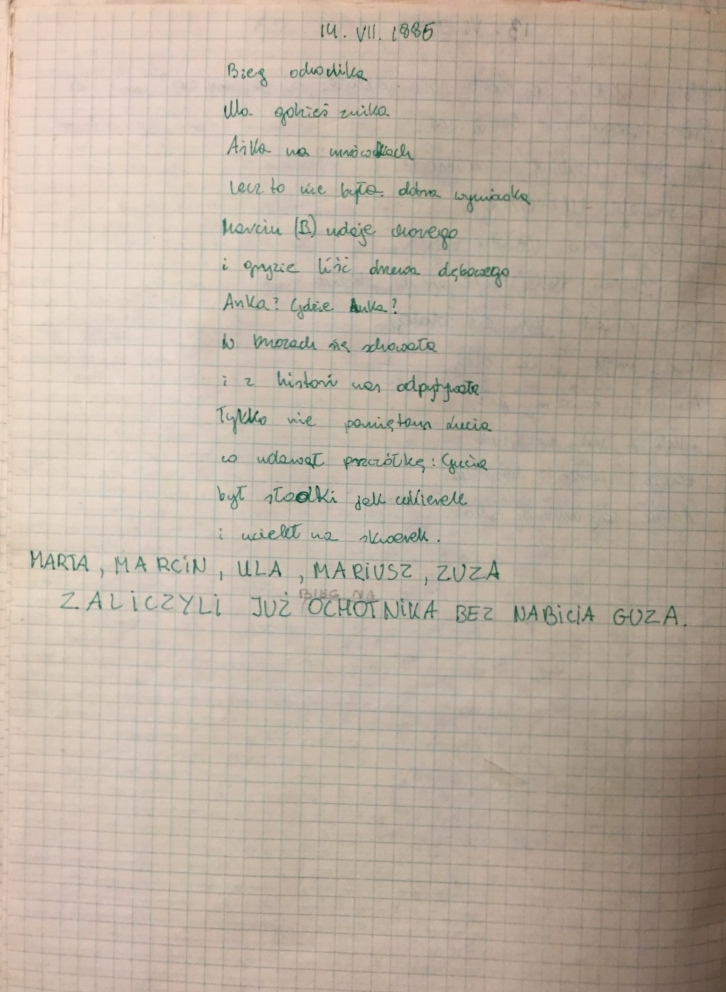 14. VII. 1985
Bieg ochotnika
Ula gdzieś znika
Ańka na mrówkach
lecz to nie była dobra wymówka
Marcin (B.) udaje chorego
i gryzie liść drzewa dębowego
Anka? Gdzie Anka?
W krzozach się schowała
i z historii nas odpytywała
Tylko nie pamiętam Lucia
co udawał pszczółkę: Gucia
był słodki jak cukierek
i uciekł na skwerek.
MARTA, MARCIN, ULA, MARIUSZ, ZUZA
BIEG NA
ZALICZYLI JUŻ OCHOTNIKA BEZ NABICIA GUZA.